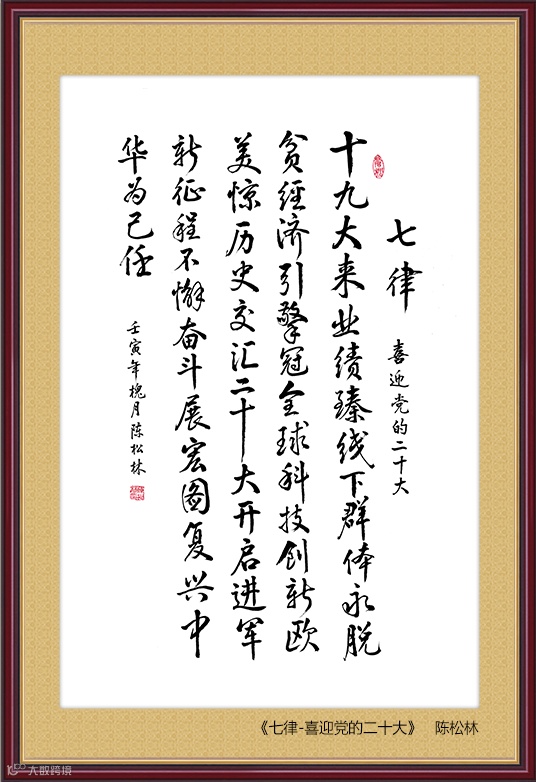 七律 喜迎党的二十大
十九大来业绩臻线下群体永脱
贫经济引擎冠全球科技创新欧
美惊历史交汇二十大开启进军
新征程不懈奋斗展宏图复兴中
华为己任
壬寅年槐月陈松林
《七律-喜迎党的二十大》 陈松林
大数跨境